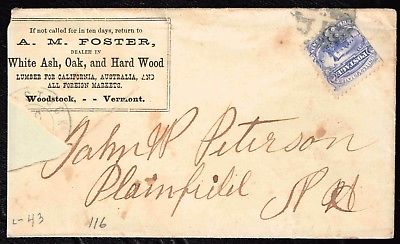 If not called for in ten days, return to
A. M. FOSTER,
DEALER IN
White Ash, Oak, and Hard Wood
LUMBER FOR CALIFORNIA, AUSTRALIA, AND
ALL FOREIGN MARKETS.
Woodstock, - - Vermont.
John W Peterson
Plainfield N H
L-43
116